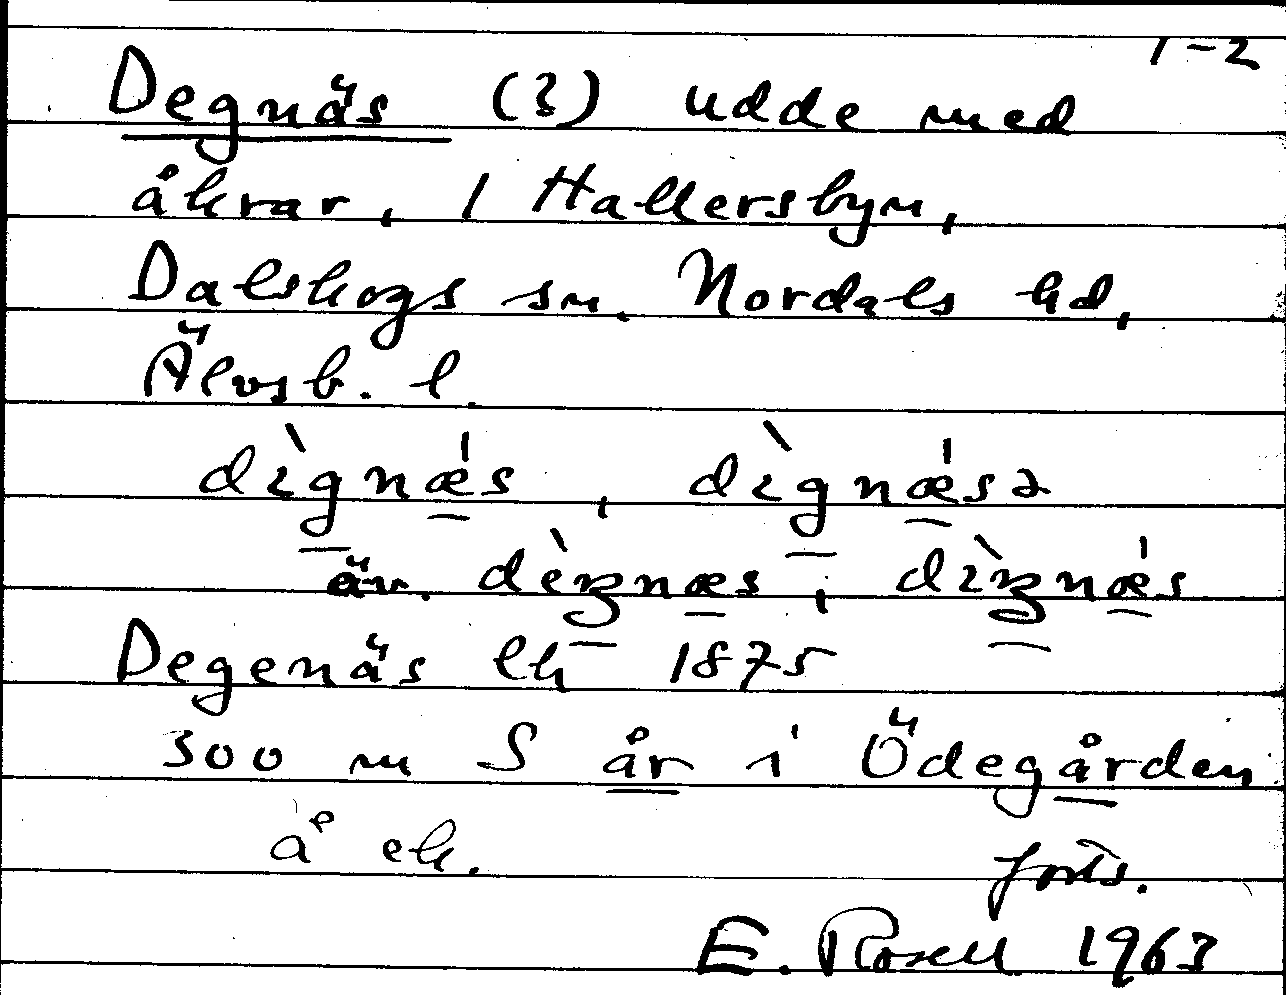 1-2
Degnäs (3) udde med
åkrar, 1 Hallersbyn,
Dalskogs sn. Nordals hd,
Älvsb. l.
dìgnǽs, dìgnǽsə
äv. dèŋnæs, dìŋnǽs
Degenäs ek 1875
300 m S år i Ödegården
å ek.
forts.
E. Rosell 1963